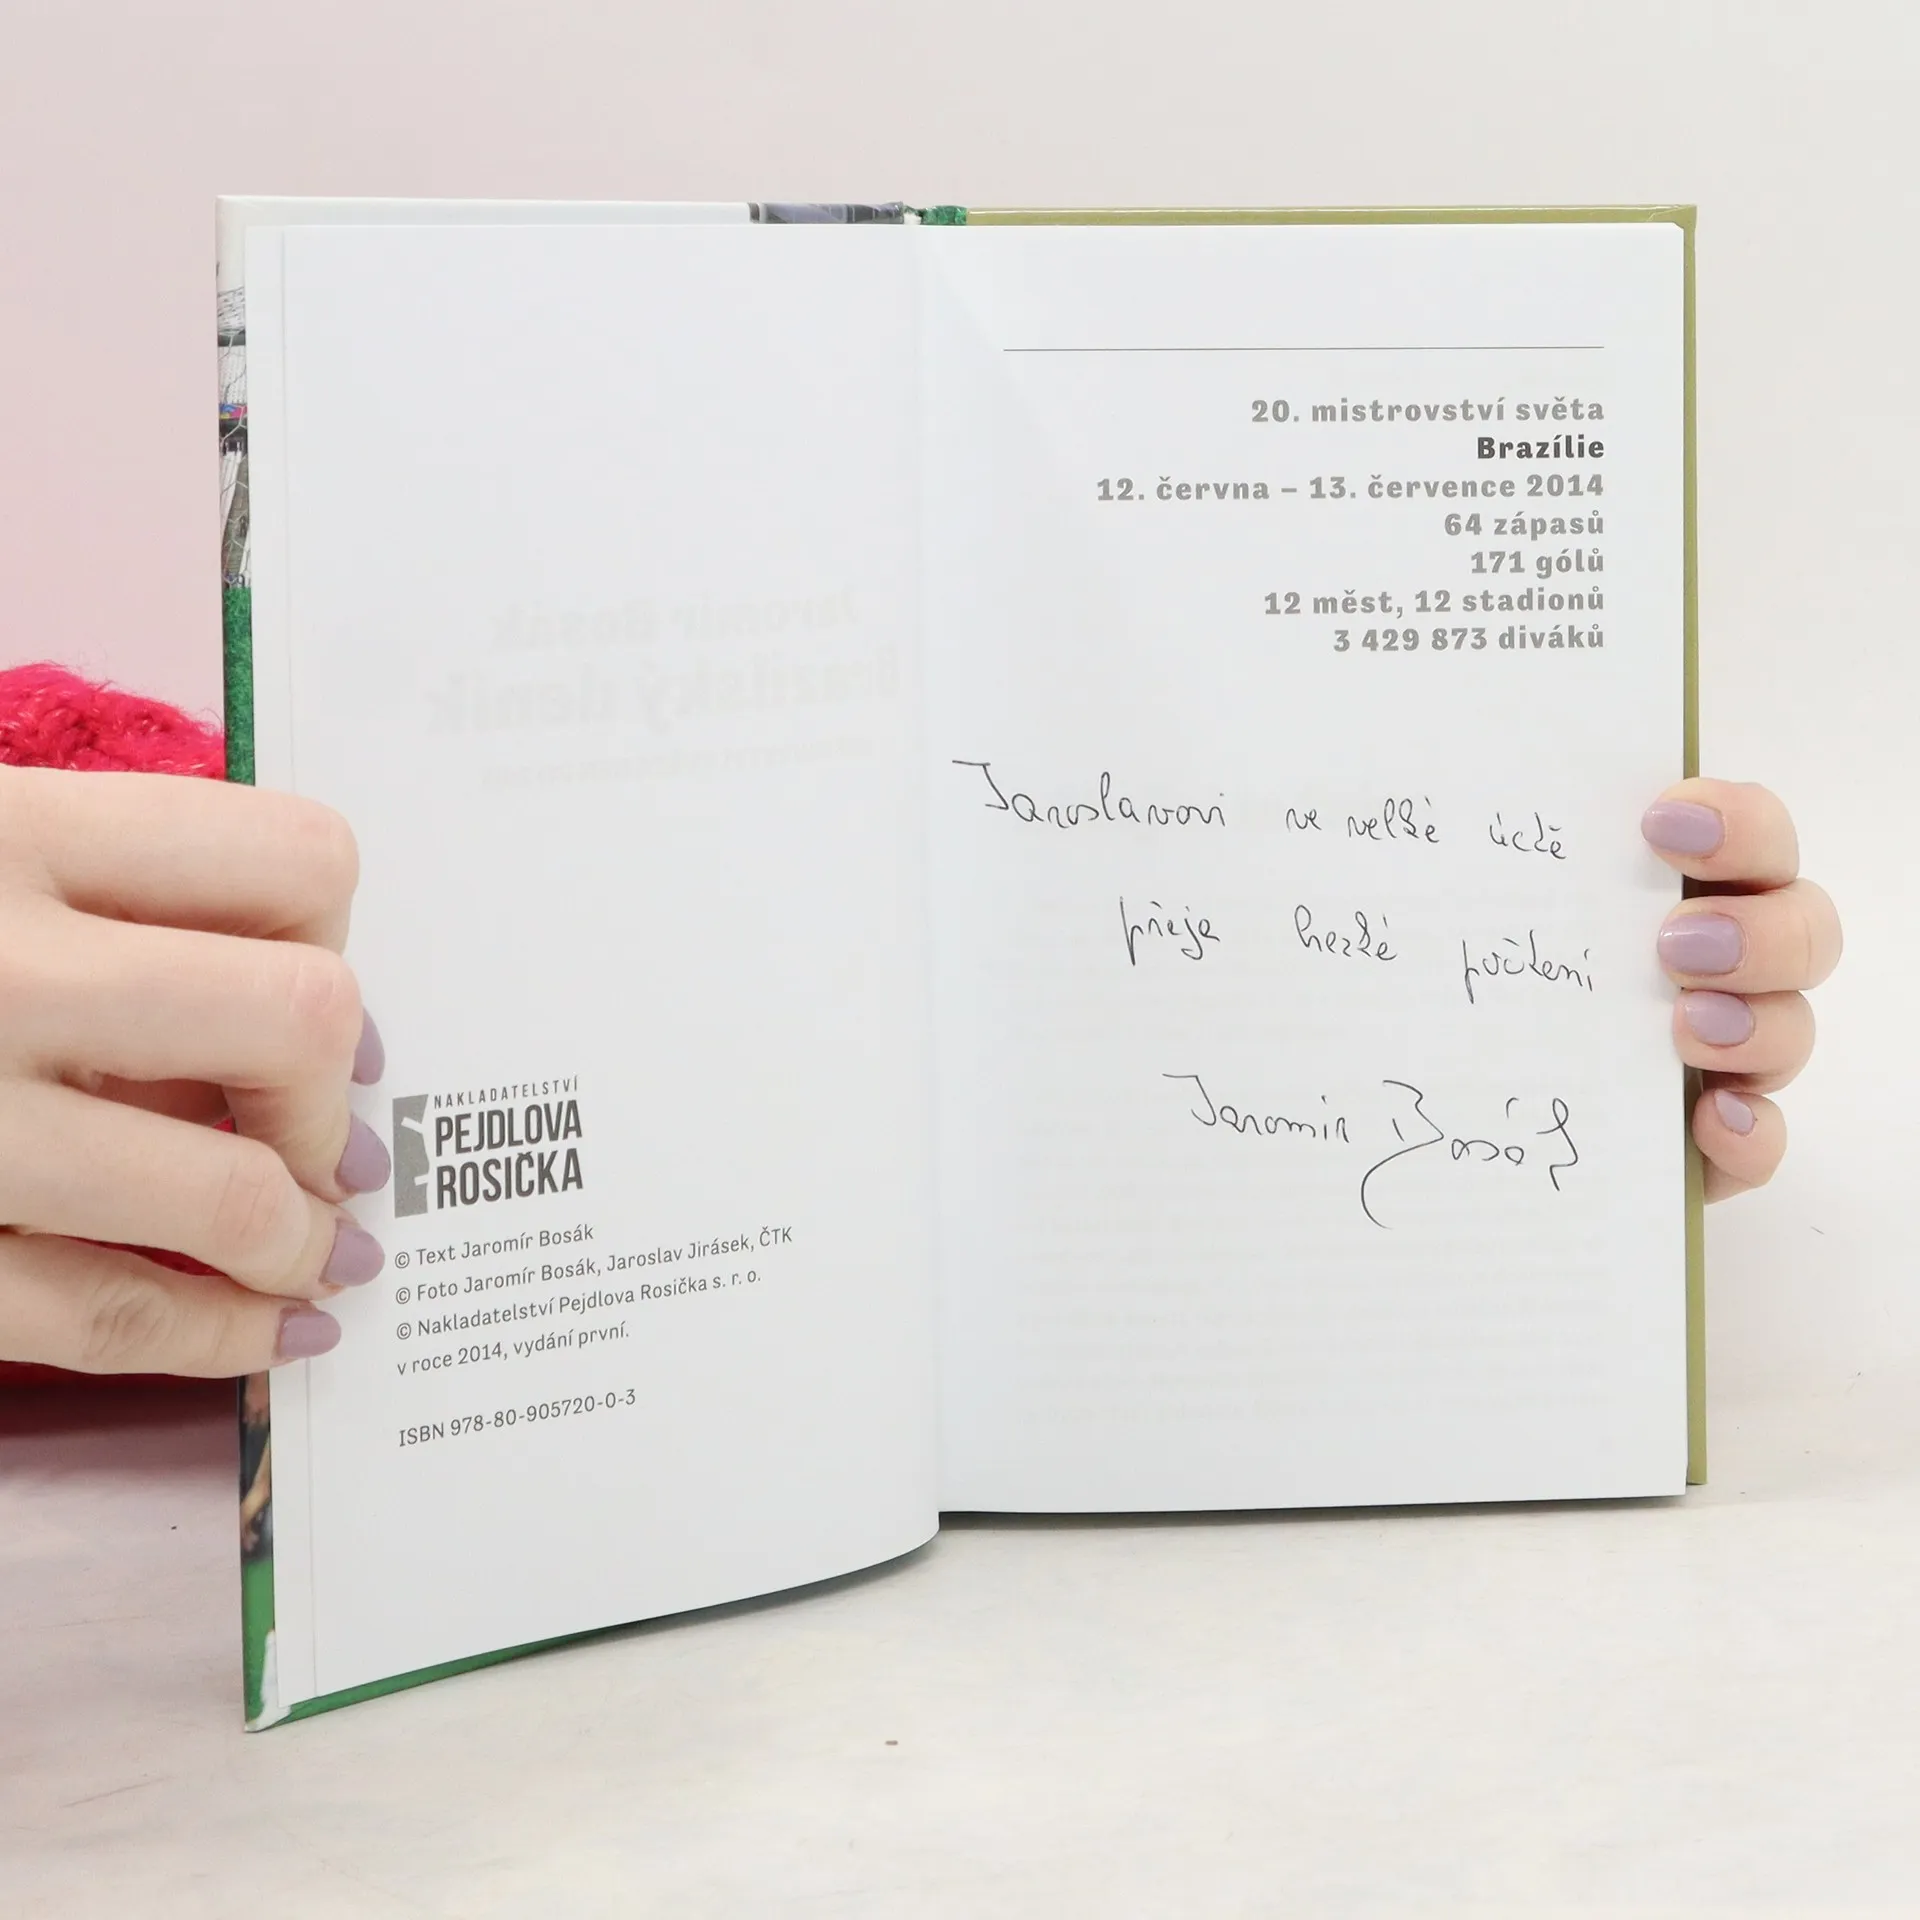 NAKLADATELSTVÍ
PEJDLOVA
ROSIČKA
© Text Jaromír Bosák
© Foto Jaromír Bosák, Jaroslav Jirásek, ČTK
© Nakladatelství Pejdlova Rosička s. r. o.
v roce 2014, vydání první.
ISBN 978-80-905720-0-3
20. mistrovství světa
Brazílie
12. června – 13. července 2014
64 zápasů
171 gólů
12 měst, 12 stadionů
3 429 873 diváků
Jaroslavovi ve velké úctě
přeje hezké počtení
Jaromír Bosák